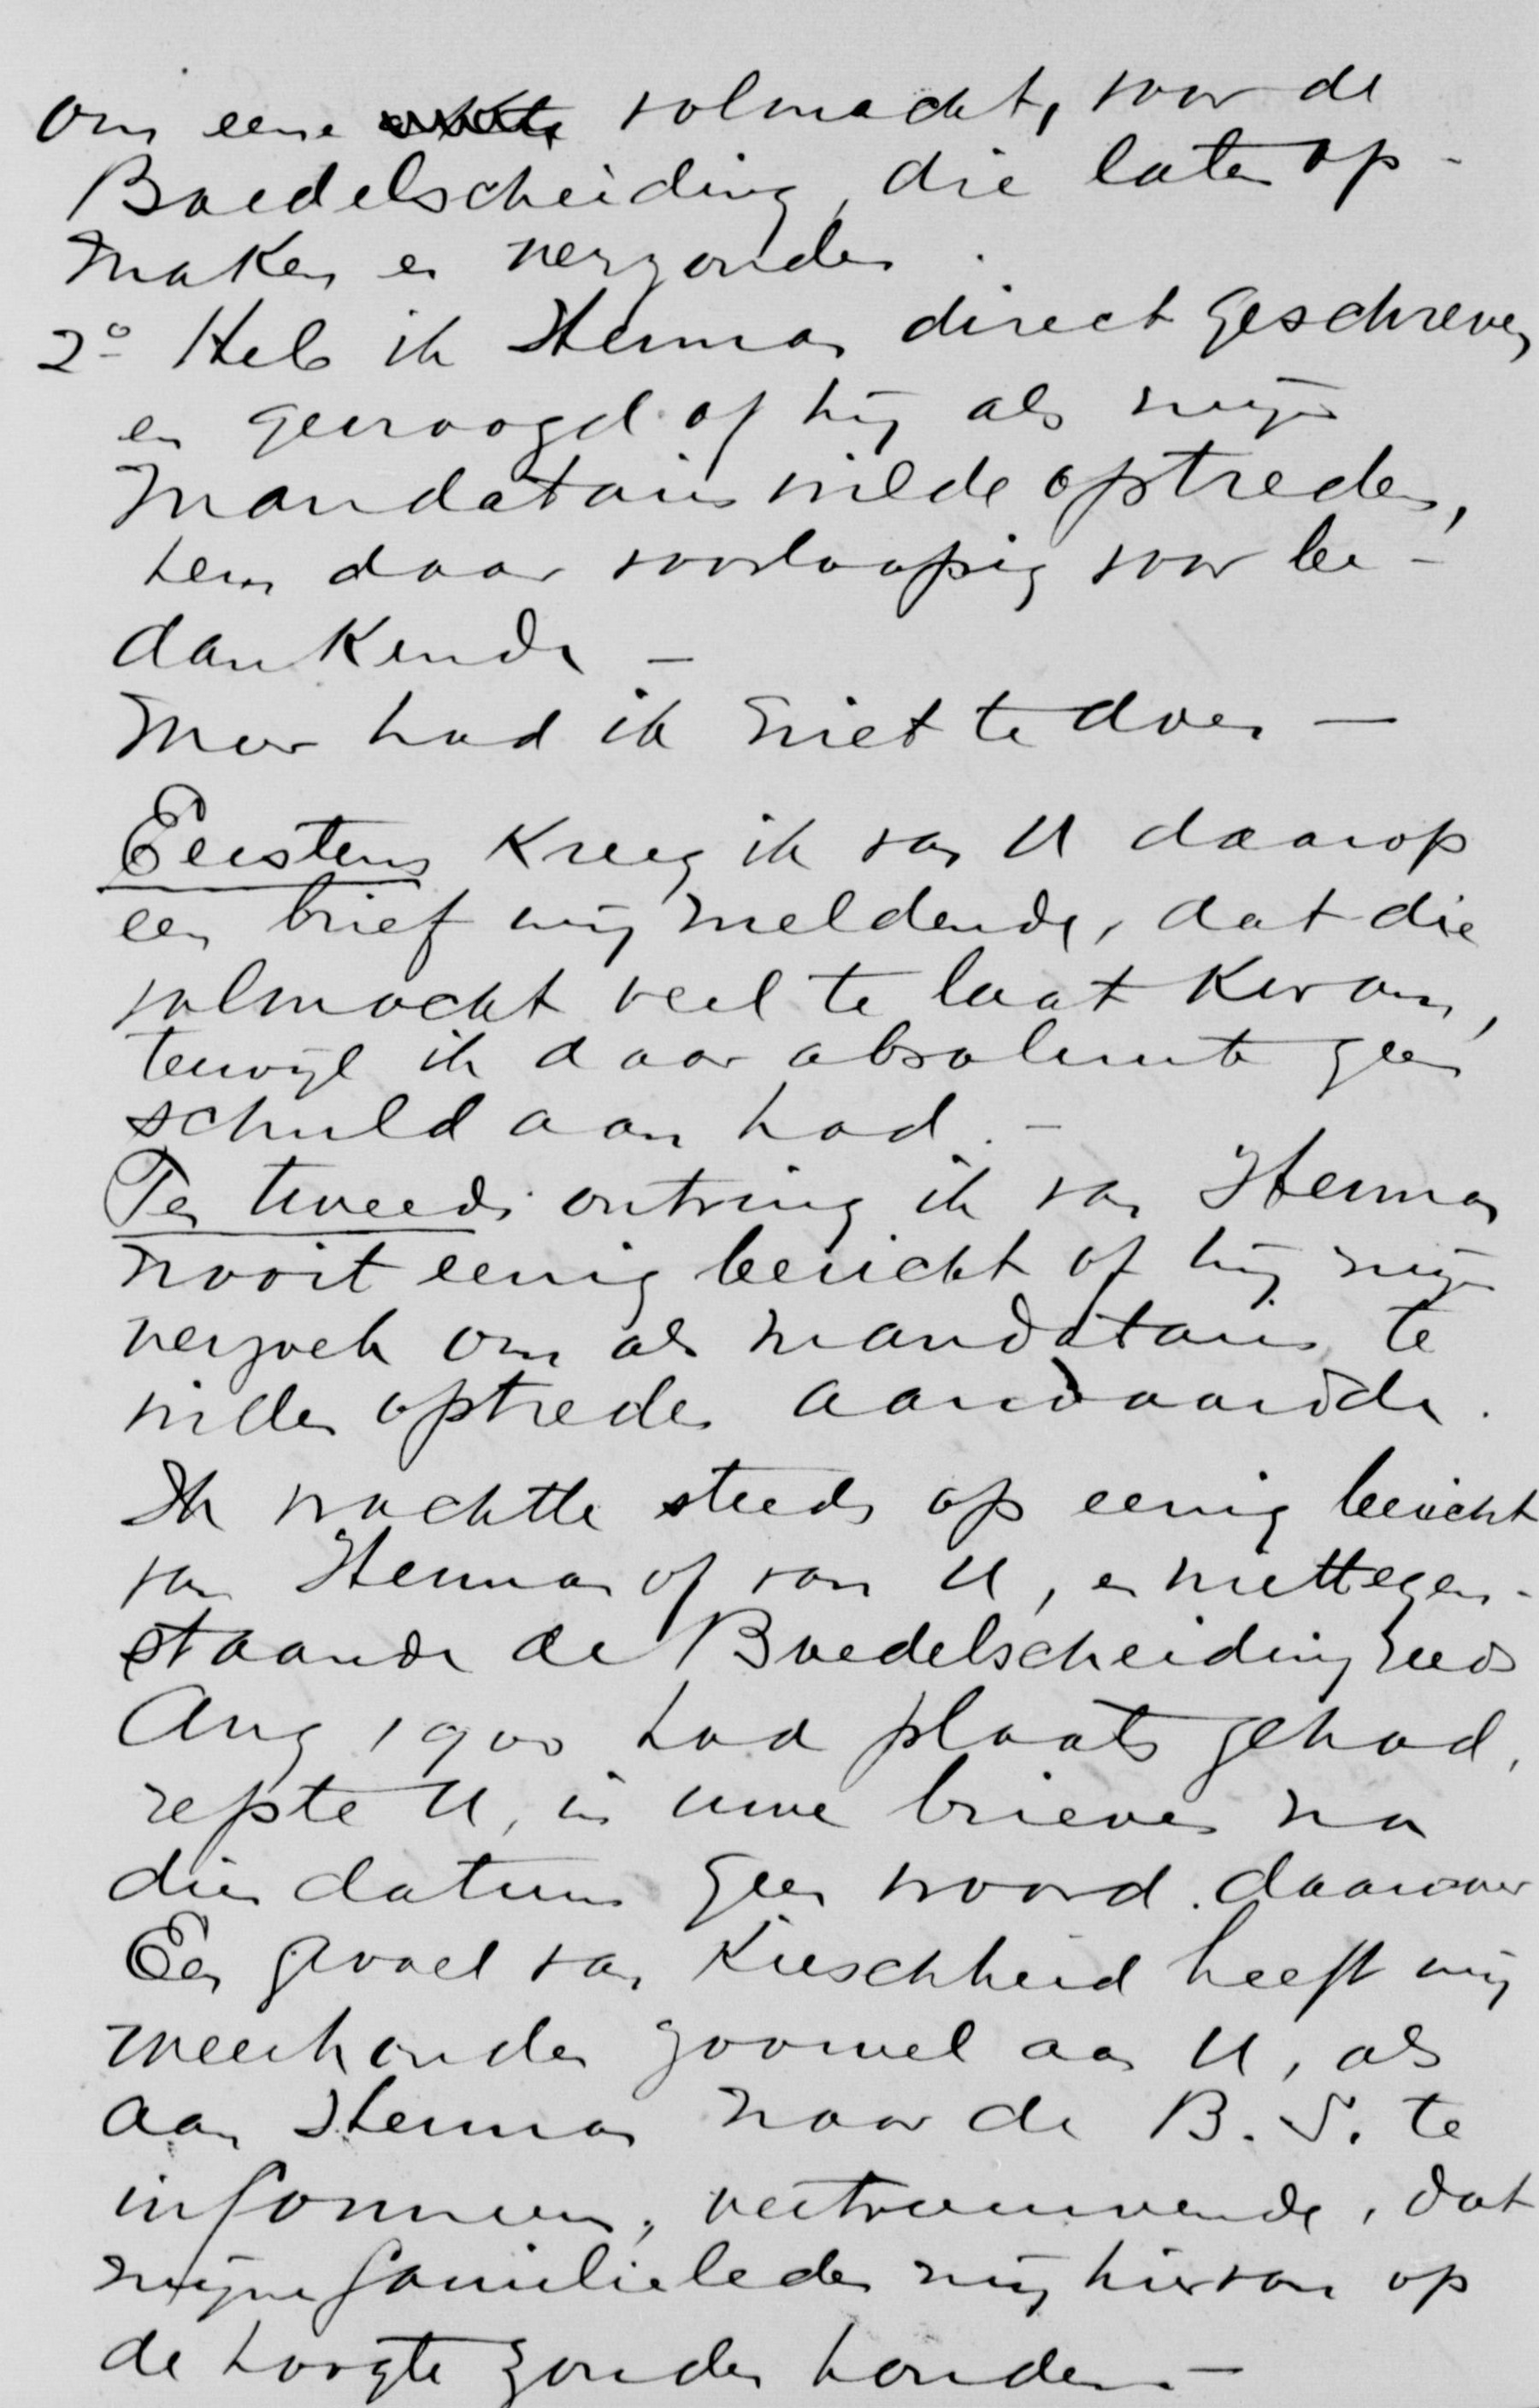 om eene volmacht, voor de
Boedelscheiding, die laten op-
maken en verzonden.
2° Heb ik Herman direct geschreven
en gevraagd of hij als mijn
Mandataris wilde optreden,
hem daar voorloopig voor be-
dankende —
Meer had ik niet te doen —
Eerstens kreeg ik van U daarop
een brief mij meldende, dat die
volmacht veel te laat kwam,
terwijl ik daar absoluut geen
schuld aan had. —
Ten tweede ontving ik van Herman
nooit eenig bericht of hij mijn
verzoek om als mandataris te
willen optreden aanvaardde.
Ik wachtte steeds op eenig bericht
van Herman of van U, en niettegen-
staande de Boedelscheiding reeds
Aug 1900 had plaats gehad,
repte U, in uwe brieven na
dien datum geen woord daarover
Een gevoel van Kieschheid heeft mij
weerhouden zoowel aan U, als
aan Herman naar de B. S. te
informeeren, vertrouwende, dat
mijne familieleden mij hiervan op
de hoogte zouden houden. —